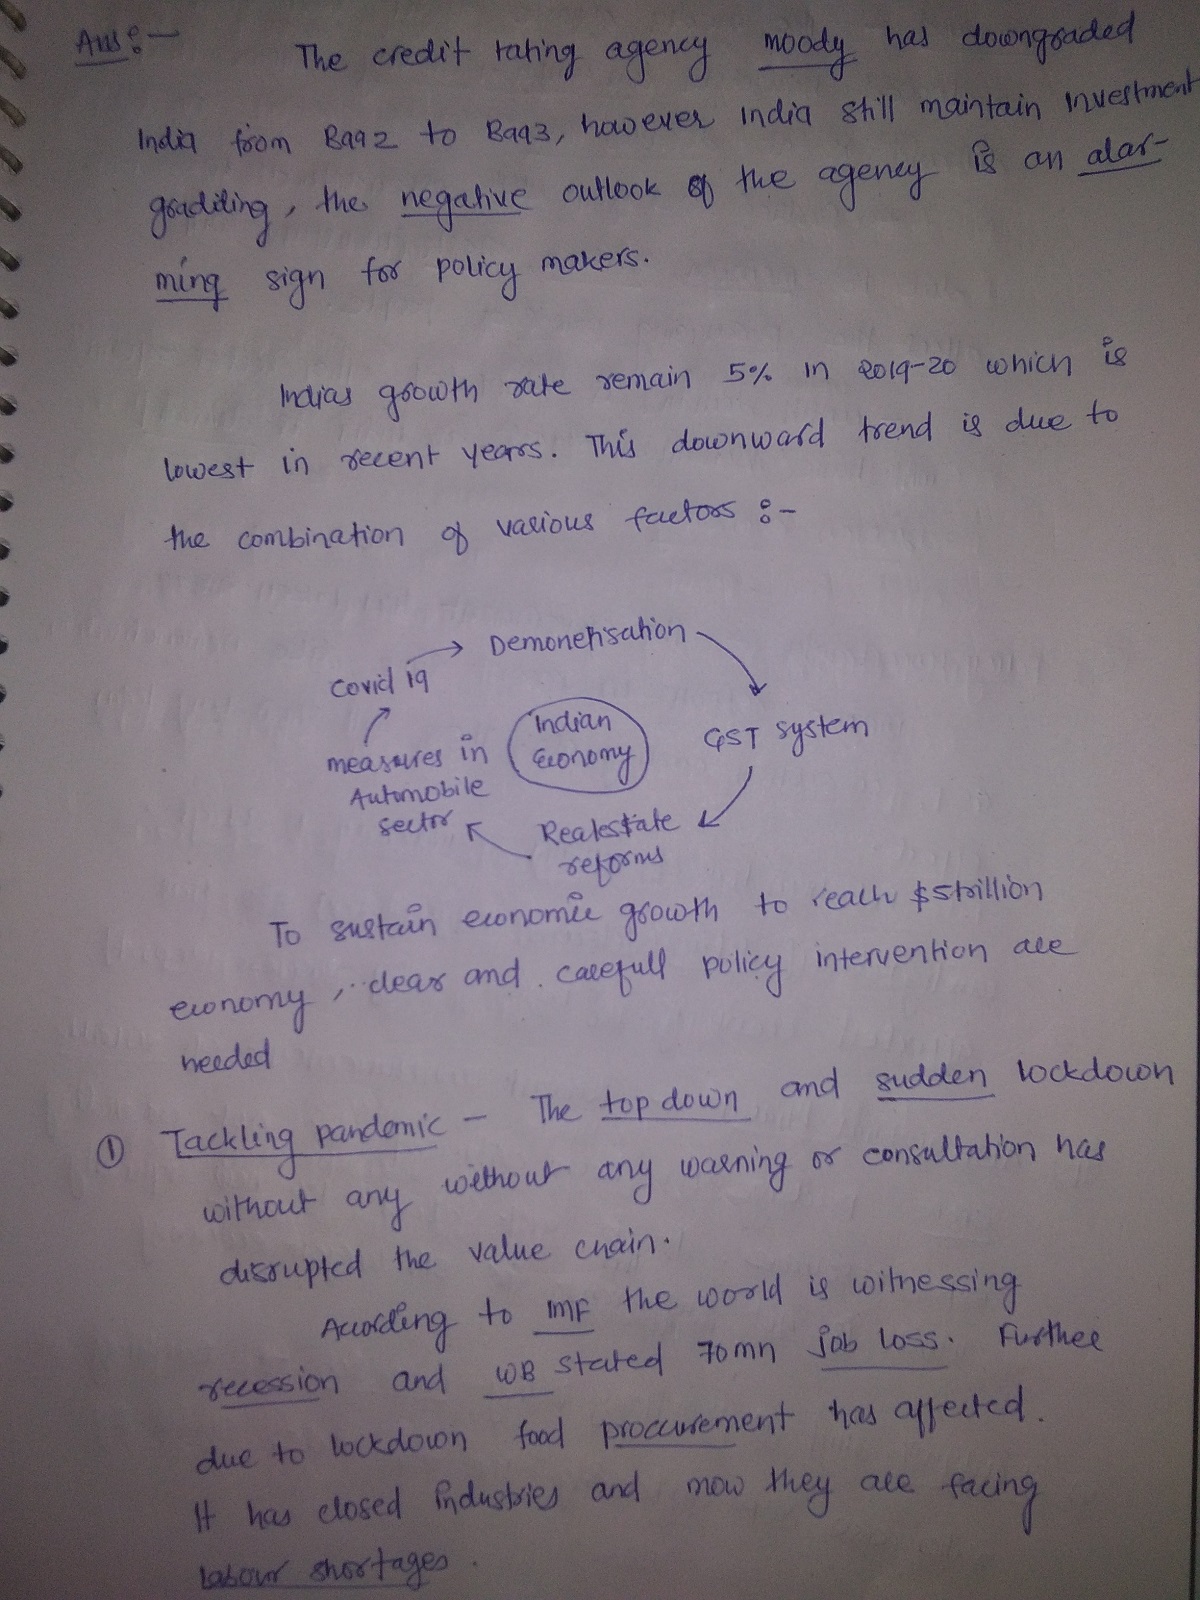 Ans:-
The credit rating agency moody has downgraded
India from Baa2 to Baa3, however India still maintain investment
gradiling, the negative outlook of the agency is an alar-
ming sign for policy makers.
Indias growth rate remain 5% in 2019-20 which is
lowest in recent years. This downward trend is due to
the combination of various factors :-
Demonetisation
Covid 19
Indian
Economy
GST system
measures in
Automobile
sector
Realestate
reforms
To sustain economic growth to reach $5trillion
economy, clear and carefull policy intervention are
needed
① Tackling pandemic - The top down and sudden lockdown
without any without any warning or consultation has
disrupted the value chain.
According to IMF the world is witnessing
recession and WB stated 70mn job loss. Further
due to lockdown food procurement has affected.
It has closed industries and now they are facing
labour shortages.